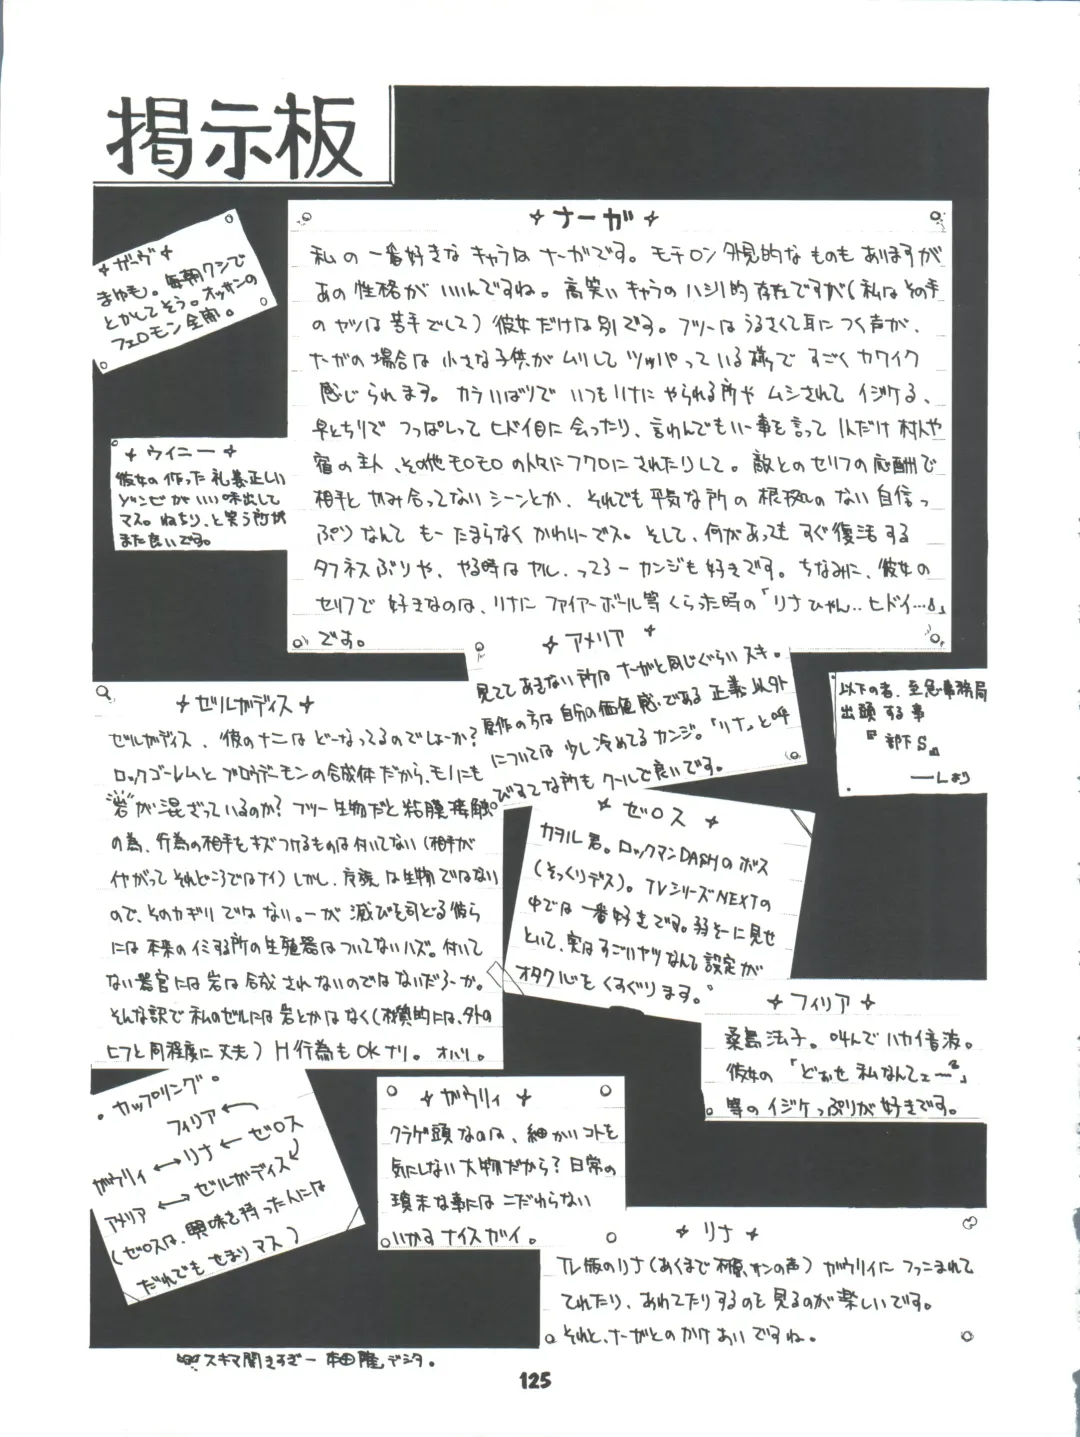 掲示板
✦ ガーヴ ✦
まゆも。毎朝クシで
とかしてそう。オッサンの
フェロモン全開。
✦ ナーガ ✦
私の一番好きなキャラはナーガです。モチロン外見的なものもありますが
あの性格がいいんですね。高笑いキャラのハシリ的存在ですが(私はその手
のヤツは苦手でして)彼女だけは別です。フツーはうるさくて耳につく声が、
ナーガの場合は小さな子供がムリしてツッパっている様ですごくカワイク
感じられます。カラいばりでいつもリナにやられる所やムシされてイジケる、
早とちりでつっぱしってヒドイ目に会ったり、言わんでもいー事を言って1人だけ村人や
宿の主人、その他モロモロの人々にフクロにされたりして。敵とのセリフの応酬で
相手とかみ合ってないシーンとか、それでも平気な所の根拠のない自信っ
ぷりなんてもーたまらなくかわいーでス。そして、何があってもすぐ復活する
タフネスぶりや、やる時はヤル、ってろーカンジも好きです。ちなみに、彼女の
セリフで好きなのは、リナにファイアーボール等くらった時の「リナひゃん‥ヒドイ…」
です。
✦ ウイニー ✦
彼女の作った礼義正しい
ゾンビがいい味出して
マス。ねちり、と笑う所が
また良いです。
✦ アメリア ✦
見ててあきない所はナーガと同じぐらいスキ。
原作の方は自分の価値感である正義以外
については少し冷めてるカンジ。「リナ」と呼
びすてな所もクールで良いです。
以下の者、至急事務局
出頭する事
『部下S』
―しおり
✦ ゼルガディス ✦
ゼルガディス、彼のナニはどーなってるのでしょーか?
ロックゴーレムとブロウデーモンの合成体だから、モノにも
"岩"が混ざっているのか? フツー生物だと粘膜接触
の為、行為の相手をキズつけるものは付いてない(相手が
イヤがってそれどころではナイ)しかし、魔族は生物ではない
ので、そのカギリではない。ーが滅びを司どる彼ら
には本来のイミする所の生殖器はついてないハズ。付いて
ない器官には岩は合成されないのではないだろーか。
そんな訳で私のゼルには岩とかはなく(材質的には、外の
ヒフと同程度に丈夫)H行為もOKナリ。オハリ。
✦ ゼロス ✦
カヲル君。ロックマンDASHのボス
(そっくりデス)。TVシリーズNEXTの
中では一番好きです。弱そーに見せ
といて、実はすごいヤツなんて設定が
オタク心をくすぐります。
✦ フィリア ✦
桑島法子。叫んでハカイ音波。
彼女の「どぉせ私なんてェ〜」
等のイジケっぷりが好きです。
・カップリング。
フィリア←
ガウリィ ←→ リナ ← ゼロス
アメリア ←→ ゼルガディス
(ゼロスは、興味を持った人には
だれでもせまりマス)
✦ ガウリィ ✦
クラゲ頭なのは、細かいコトを
気にしない大物だから? 日常の
瑣末な事にはこだわらない
いかすナイスガイ。
✦ リナ ✦
TV版のリナ(あくまで林原サンの声)ガウリィにつっこまれて
てれたり、あわてたりするのを見るのが楽しいです。
それと、ナーガとのかけあいですね。
スキマ開きすぎー 本田隆デシタ。
125